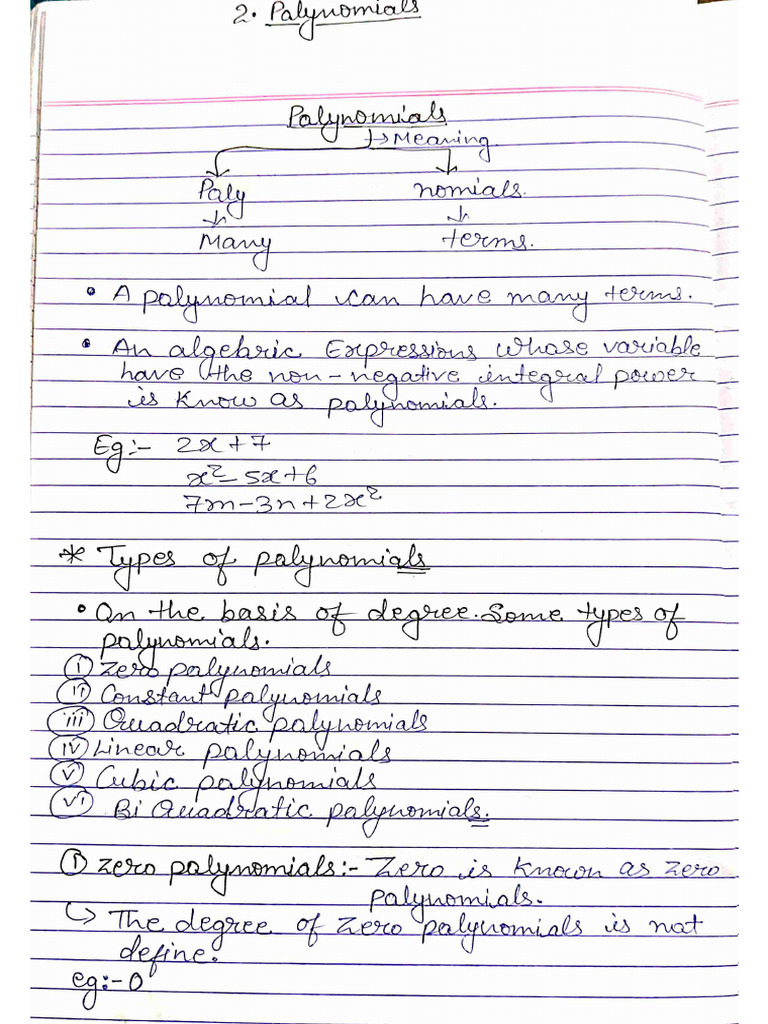 2. Palynomials
Palynomials
↳Meaning
Paly nomials.
↓ ↓
Many terms.
• A palynomial can have many terms.
• An algebric Expressions whose variable
have the non-negative integral power
is Know as palynomials.
Eg:- 2x+7
x²-5x+6
7m-3n+2x²
* Types of palynomials
• On the basis of degree. Some types of
palynomials.
(i) Zero palynomials
(ii) Constant palynomials
(iii) Quadratic palynomials
(iv) Linear palynomials
(v) Cubic palynomials
(vi) Bi Quadratic palynomials.
(i) Zero palynomials:- Zero is known as zero
palynomials.
↳ The degree of Zero palynomials is nat
define.
eg:- 0